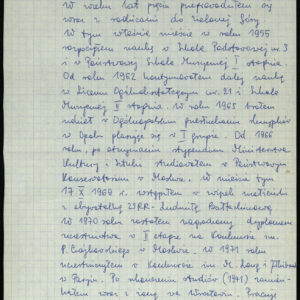 W wieku lat pięciu przeprowadziłem się
wraz z rodzicami do Zielonej Góry
W tym właśnie mieście w roku 1955
rozpocząłem naukę w Szkole Podstawowej nr 3
i w Państwowej Szkole Muzycznej I stopnia.
Od roku 1962 kontynuowałem dalej naukę
w Liceum Ogólnokształcącym nr 21 i Szkole
Muzycznej II stopnia. W roku 1965 brałem
udział w Ogólnopolskim przesłuchaniu skrzypków
w Opolu plasując się w I grupie. Od 1966
roku, po otrzymaniu stypendium Ministerstwa
Kultury i Sztuki studiowałem w Państwowym
Konserwatorium w Moskwie. W mieście tym
17 X 1969 r. wstąpiłem w związek małżeński
z obywatelką ZSRR - Ludmiłą
W 1970 roku zostałem nagrodzony dyplomem
uczestnictwa w II etapie na Konkursie im.
P. Czajkowskiego w Moskwie. W 1971 roku
uczestniczyłem w Konkursie im. M. Long i J. Thibaud
w Paryżu. Po ukończeniu studiów (1971)
wraz z żoną we Wrocławiu. Pracuję